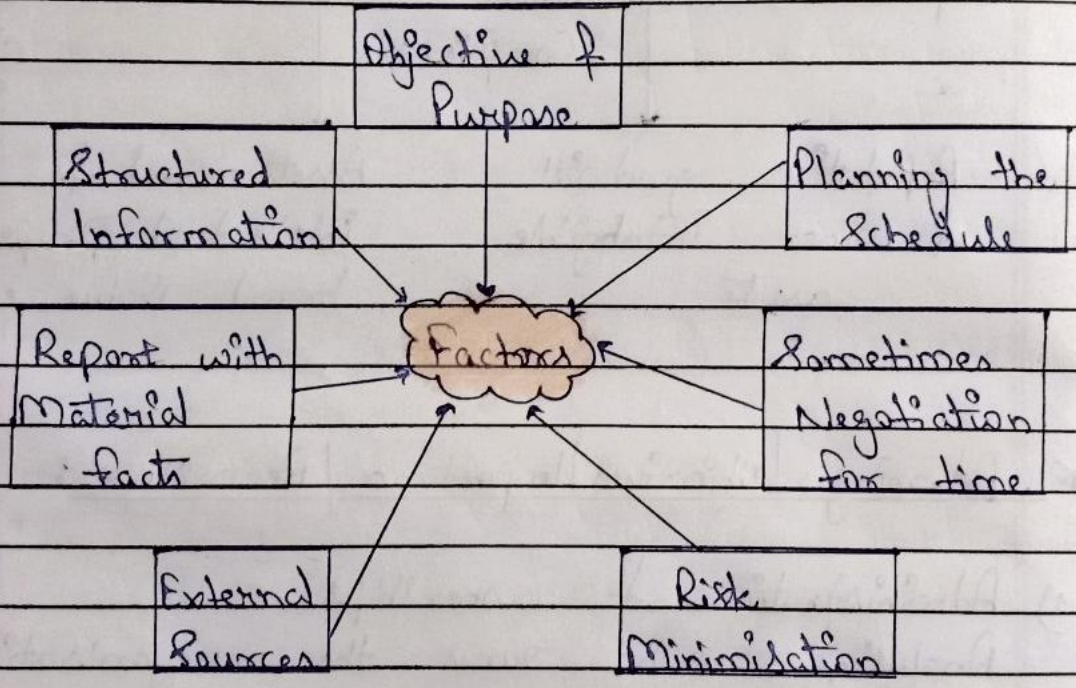 Objective &
Purpose
Structured
Information
Planning the
Schedule
Factors
Report with
Material
facts
Sometimes
Negotiation
for time
External
Sources
Risk
Minimisation